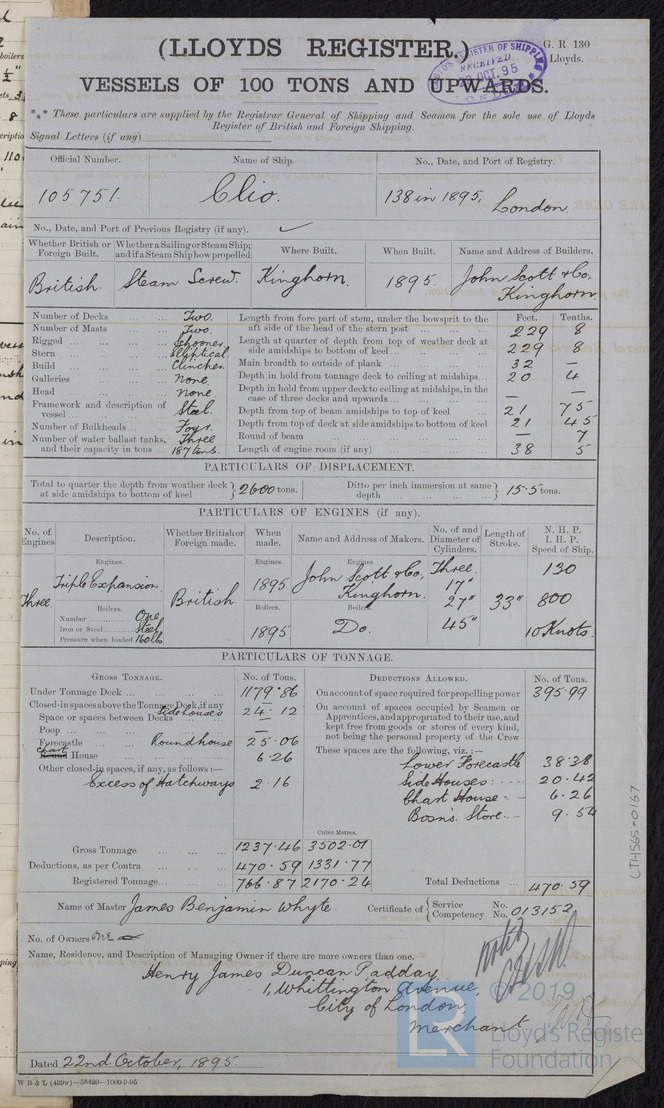 (LLOYDS REGISTER.)
G. R. 130
Lloyds.
RECEIVED
OCT. 95
VESSELS OF 100 TONS AND UPWARDS.
*** These particulars are supplied by the Registrar General of Shipping and Seamen for the sole use of Lloyds
Register of British and Foreign Shipping.
Signal Letters (if any)
Official Number. Name of Ship. No., Date, and Port of Registry.
105751. Clio. 138 in 1895, London
No., Date, and Port of Previous Registry (if any).
Whether British or Foreign Built. Whether a Sailing or Steam Ship; and if a Steam Ship how propelled Where Built. When Built. Name and Address of Builders.
British. Steam Screw. Kinghorn. 1895 John Scott & Co, Kinghorn
Number of Decks ... Two.
Number of Masts ... Two.
Rigged ... Schooner
Stern ... Elliptical
Build ... Clincher.
Galleries ... None
Head ... none
Framework and description of vessel ... Steel.
Number of Bulkheads ... Four.
Number of water ballast tanks, and their capacity in tons Three 187 tons.
Feet. Tenths.
Length from fore part of stem, under the bowsprit to the aft side of the head of the stern post ... 229 8
Length at quarter of depth from top of weather deck at side amidships to bottom of keel ... 229 8
Main breadth to outside of plank ... 32 —
Depth in hold from tonnage deck to ceiling at midships ... 20 4
Depth in hold from upper deck to ceiling at midships, in the case of three decks and upwards ... — —
Depth from top of beam amidships to top of keel 21 75
Depth from top of deck at side amidships to bottom of keel 21 45
Round of beam ... — 7
Length of engine room (if any) ... 38 5
PARTICULARS OF DISPLACEMENT.
Total to quarter the depth from weather deck at side amidships to bottom of keel } 2600 tons. Ditto per inch immersion at same depth } 15.5 tons.
PARTICULARS OF ENGINES (if any).
No. of Engines Description. Whether British or Foreign made. When made. Name and Address of Makers. No. of and Diameter of Cylinders. Length of Stroke. N. H. P. I. H. P. Speed of Ship.
Engines. Engines. Engines.
Three Triple Expansion British 1895 John Scott & Co, Kinghorn. Three. 17" 27" 45" 33" 130 800 10 Knots.
Boilers. Boilers. Boilers.
Number ... One
Iron or Steel ... Steel
Pressure when loaded 160 lbs.
1895 Do.
PARTICULARS OF TONNAGE.
GROSS TONNAGE. No. of Tons. DEDUCTIONS ALLOWED. No. of Tons.
Under Tonnage Deck ... 1179.86
Closed-in spaces above the Tonnage Deck, if any —
Space or spaces between Decks Side houses 24.12
Poop ... —
Forecastle Roundhouse 25.06
Round Chart House ... 6.26
Other closed-in spaces, if any, as follows :—
Excess of Hatchways 2.16
On account of space required for propelling power 395.99
On account of spaces occupied by Seamen or Apprentices, and appropriated to their use, and kept free from goods or stores of every kind, not being the personal property of the Crew
These spaces are the following, viz. :—
Lower Forecastle 38.38
Side Houses 20.42
Chart House 6.26
Bosn's. Store 9.54
Cubic Metres.
Gross Tonnage ... 1237.46 3502.07
Deductions, as per Contra ... 470.59 1331.77
Registered Tonnage ... 766.87 2170.24
Total Deductions ... 470.59
Name of Master James Benjamin Whyte. Certificate of { Service No. Competency No. 013152
No. of Owners One
Name, Residence, and Description of Managing Owner if there are more owners than one.
Henry James Duncan Padday,
1, Whittington Avenue,
City of London,
Merchant
noted
Dated 22nd October, 1895
W B & L (439w)—58420—1000-9-95
LTHS65-0167
© 2019
LR
Lloyd's Registe
Foundation